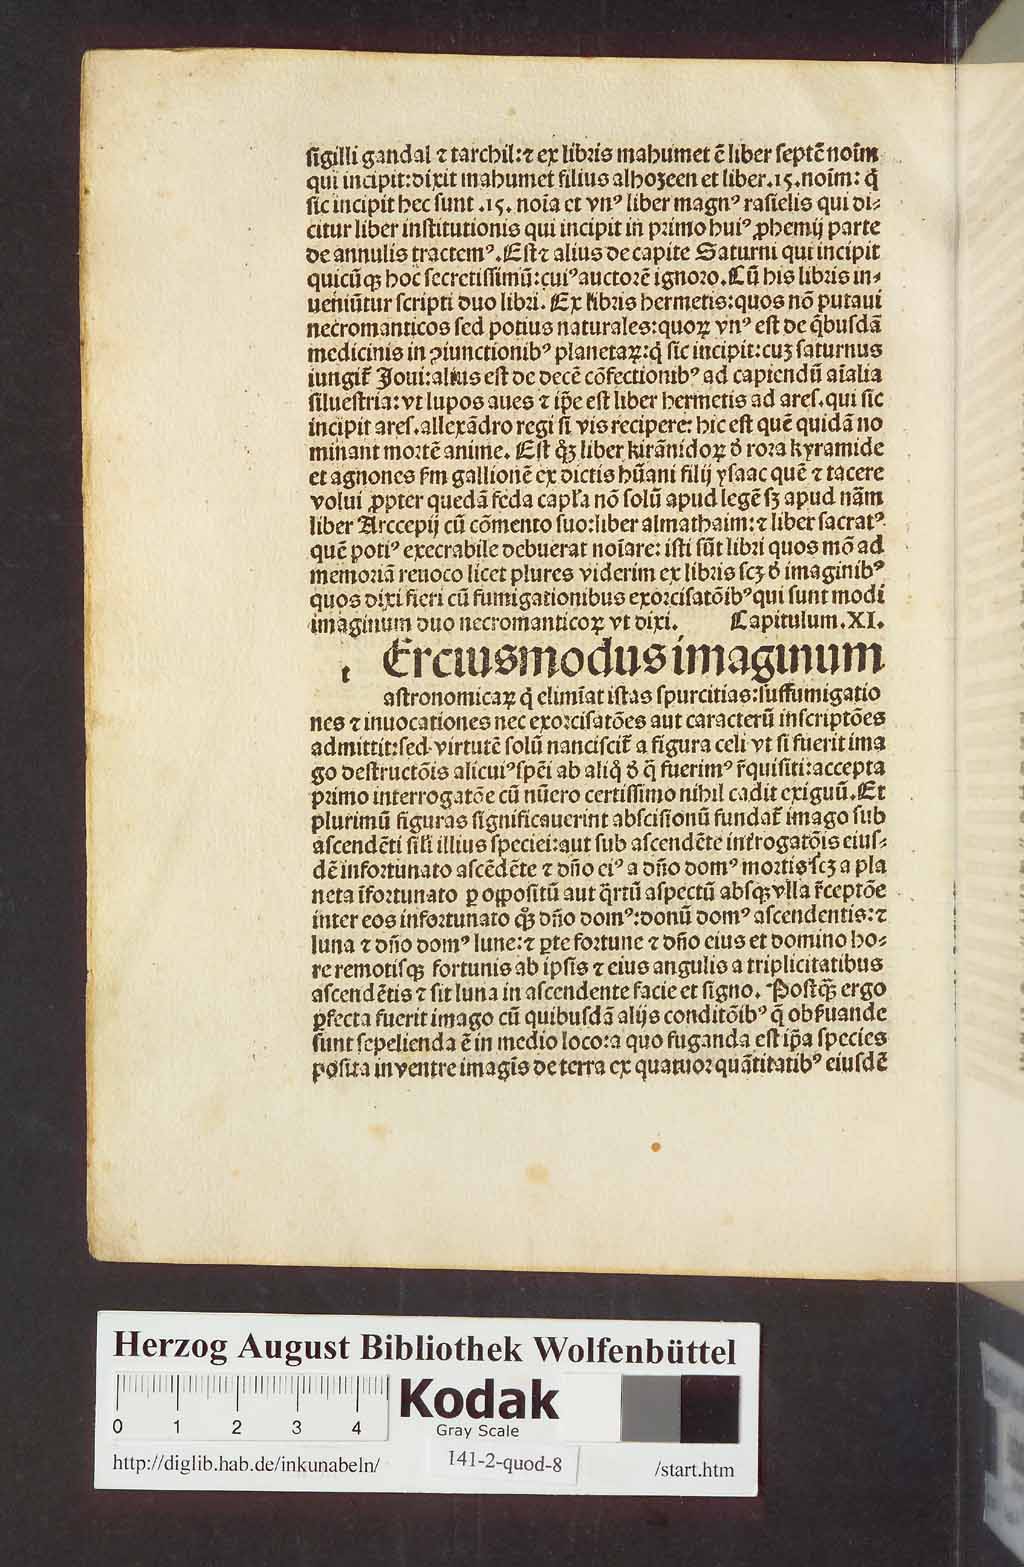 sigilli gandal ⁊ tarchil:⁊ ex libris mahumet ē liber septē noīm
qui incipit:dixit mahumet filius alhozeen et liber.15.noīm: q̄
sic incipit hec sunt .15. noīa et vnꝰ liber magnꝰ rasielis qui di⸗
citur liber institutionis qui incipit in primo huiꝰ ꝓhemij parte
de annulis tractemꝰ. Est ⁊ alius de capite Saturni qui incipit
quicūqꝫ hoc secretissimū:cuiꝰ auctorē ignoro. Cū his libris in⸗
ueniūtur scripti duo libri. Ex libris hermetis:quos nō putaui
necromanticos sed potius naturales:quoꝝ vnꝰ est de q̄busdā
medicinis in ꝯiunctionibꝰ planetaꝝ:q̄ sic incipit:cuꝫ saturnus
iungit̄ Joui:alius est de decē cōfectionibꝰ ad capiendū aīalia
siluestria: vt lupos aues ⁊ ip̄e est liber hermetis ad ares. qui sic
incipit ares. allexādro regi si vis recipere: hic est quē quidā no
minant mortē anime. Est q̊ꝫ liber kirānidoꝝ ð rora kyramide
et agnones s̄m gallionē ex dictis hūani filij ysaac quē ⁊ tacere
volui ꝓpter quedā feda capl'a nō solū apud legē sꝫ apud nām
liber Arccepij cū cōmento suo:liber almathaim:⁊ liber sacratꝰ
quē potiꝰ execrabile debuerat noīare: isti sūt libri quos mō ad
memoriā reuoco licet plures viderim ex libris scꝫ ð imaginibꝰ
quos dixi fieri cū fumigationibus exorcisatōibꝰ qui sunt modi
imaginum duo necromanticoꝝ vt dixi. Capitulum.XI.
t Ercius modus imaginum
astronomicaꝝ q̄ elimīat istas spurcitias:suffumigatio
nes ⁊ inuocationes nec exorcisatōes aut caracterū inscriptōes
admittit:sed virtutē solū nanciscit̄ a figura celi vt si fuerit ima
go destructōis alicuiꝰ sp̄ei ab aliq̊ ð q̄ fuerimꝰ r̄quisiti:accepta
primo interrogatōe cū nūero certissimo nihil cadit exiguū. Et
plurimū figuras significauerint abscisionū fundat̄ imago sub
ascendēti sil'i illius speciei:aut sub ascendēte int̄rogatōis eius⸗
dē infortunato ascēdēte ⁊ dn̄o eiꝰ a dn̄o domꝰ mortis scꝫ a pla
neta īfortunato ꝑ oppositū aut q̄rtū aspectū absqꝫ vlla r̄ceptōe
inter eos infortunato q̊ꝫ dn̄o domꝰ:donū domꝰ ascendentis:⁊
luna ⁊ dn̄o domꝰ lune:⁊ ꝑte fortune ⁊ dn̄o eius et domino ho⸗
re remotisqꝫ fortunis ab ipsis ⁊ eius angulis a triplicitatibus
ascendētis ⁊ sit luna in ascendente facie et signo. Postq̄ꝫ ergo
ꝑfecta fuerit imago cū quibusdā alijs conditōibꝰ q̄ obs̄uande
sunt sepelienda ē in medio loco:a quo fuganda est ip̄a species
posita in ventre imagīs de terra ex quatuor quātitatibꝰ eiusdē
Herzog August Bibliothek Wolfenbüttel
0 1 2 3 4
Kodak
Gray Scale
http://diglib.hab.de/inkunabeln/
141-2-quod-8
/start.htm